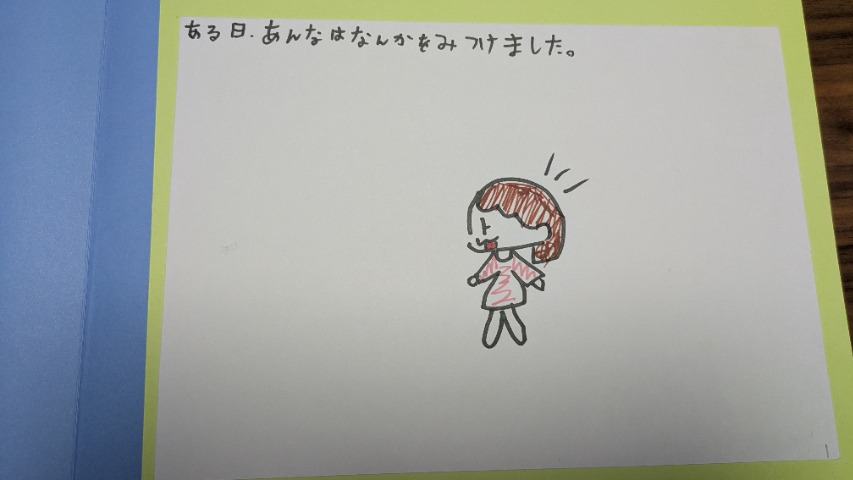 ある日.あんなはなんかをみつけました。
1